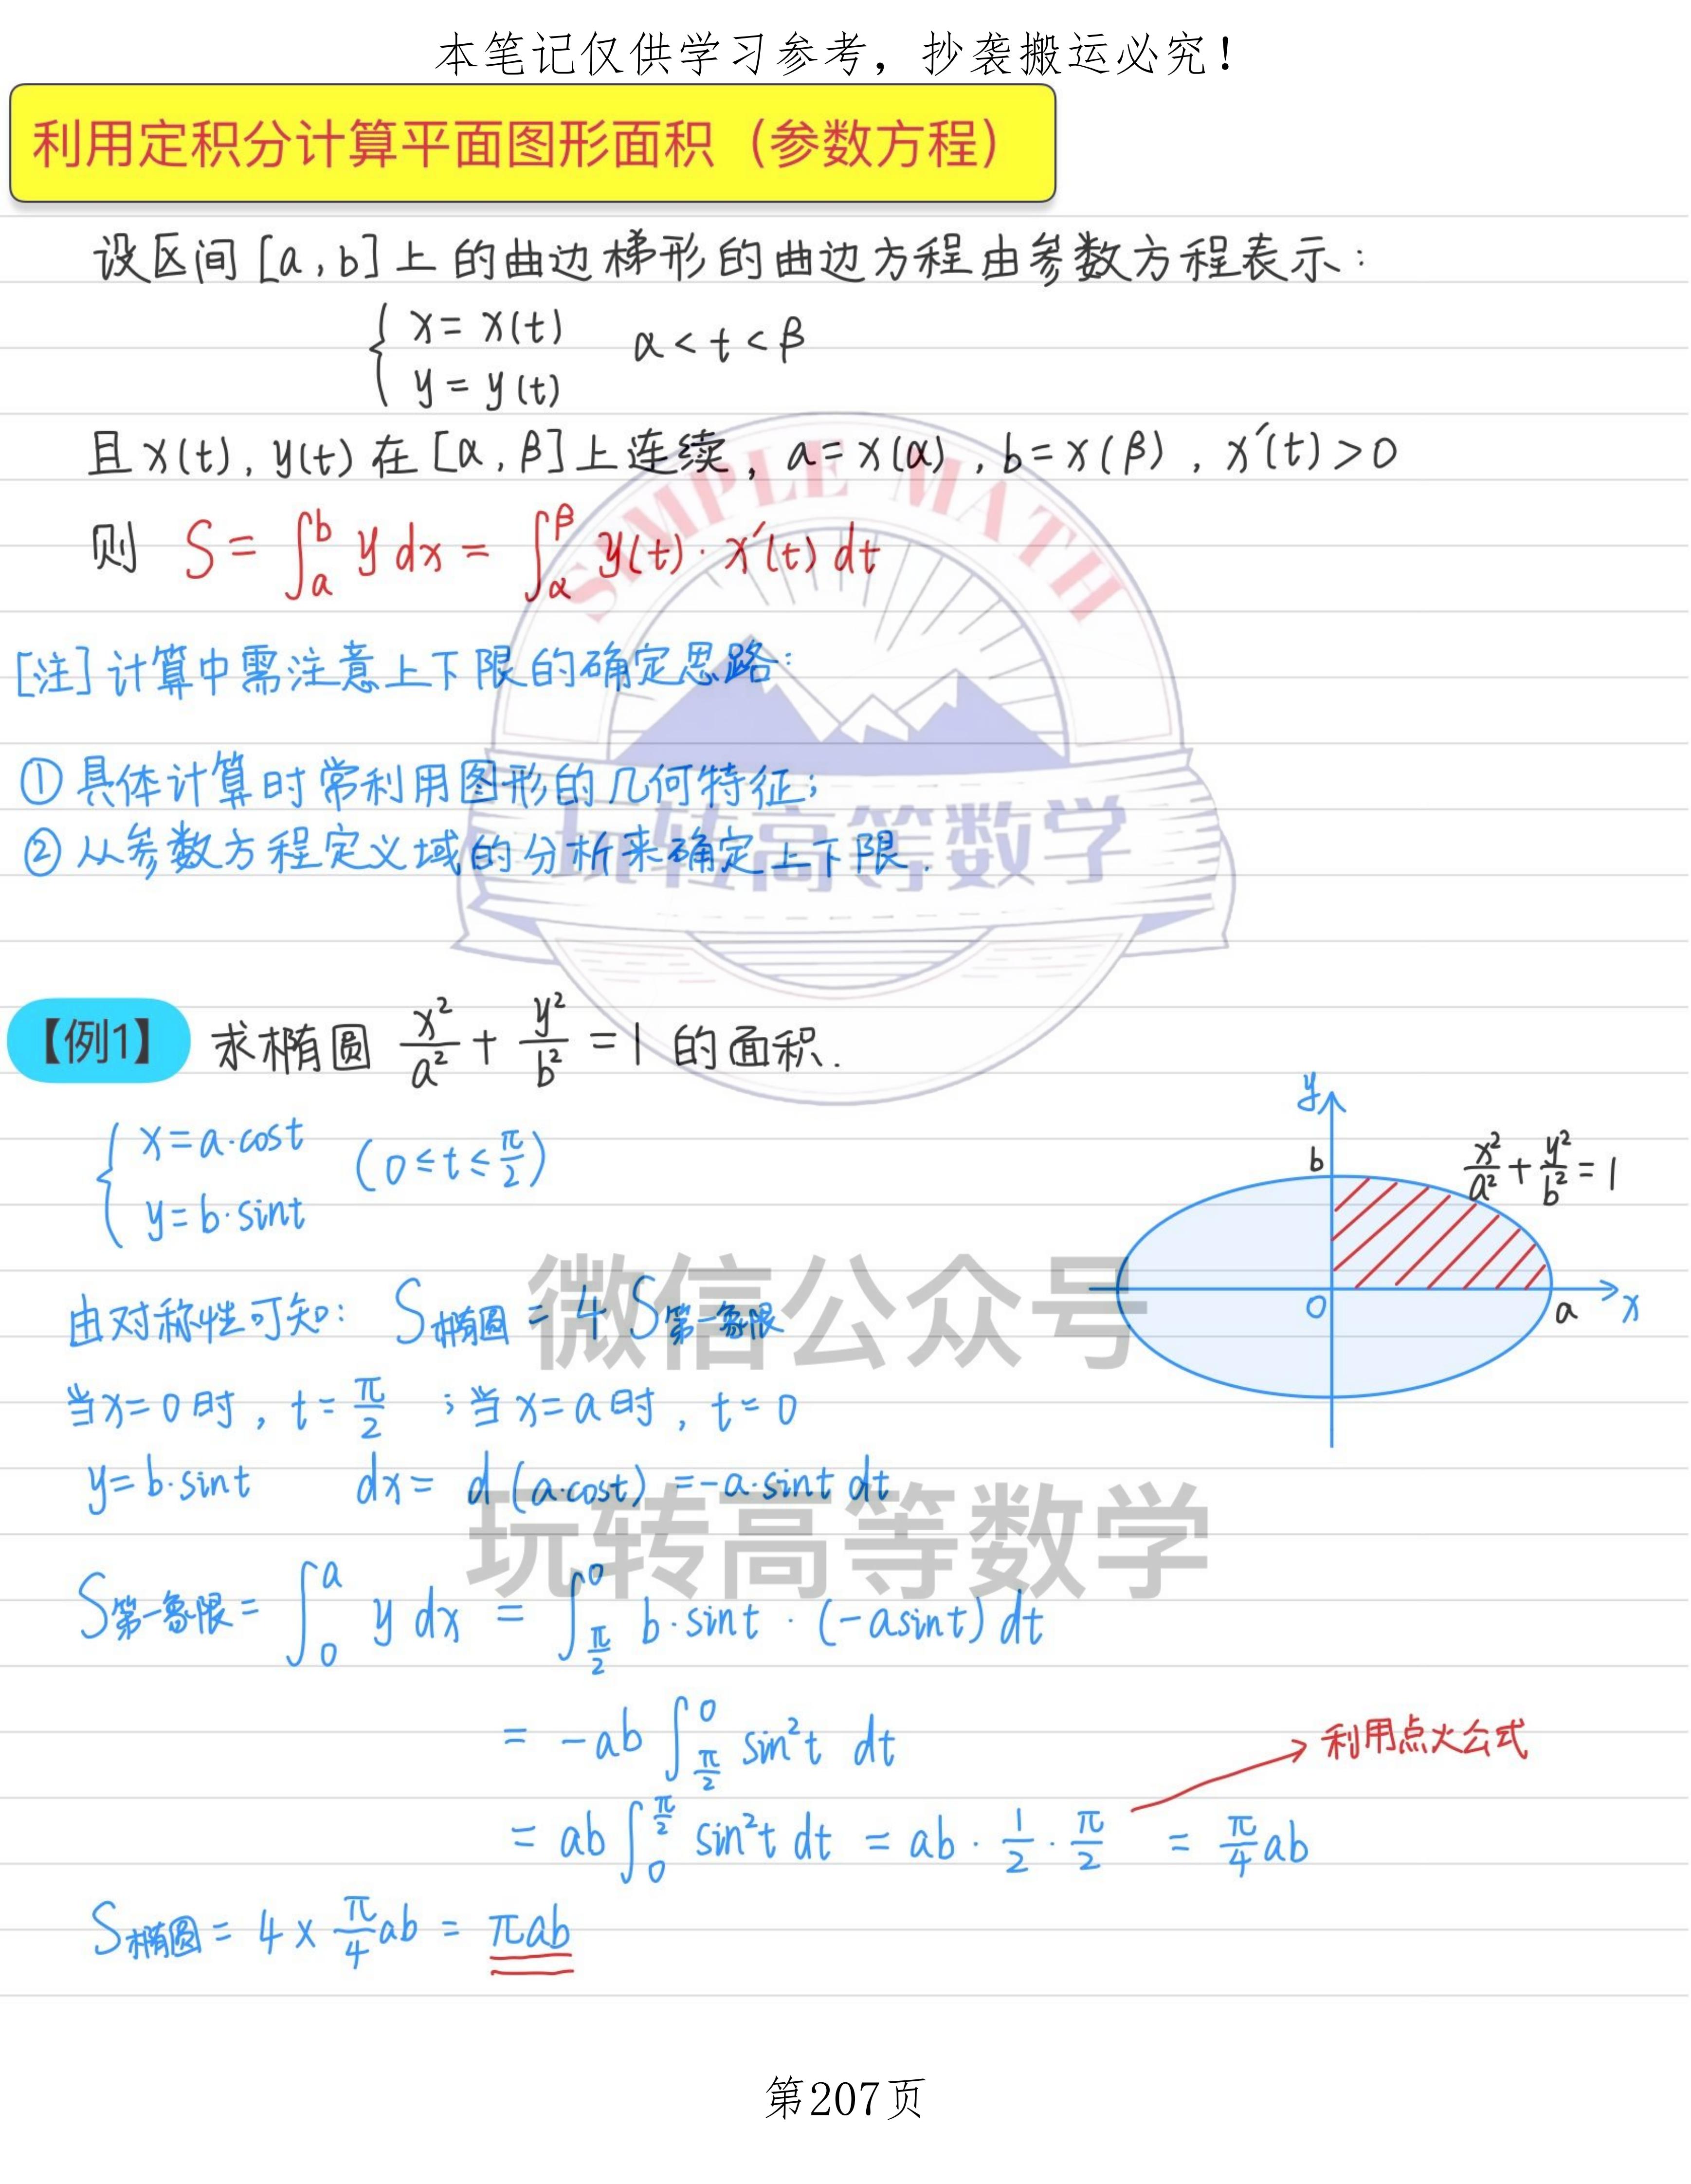 本笔记仅供学习参考，抄袭搬运必究！
利用定积分计算平面图形面积（参数方程）
设区间[a,b]上的曲边梯形的曲边方程由参数方程表示：
{ x = x(t)
y = y(t) α < t < β
且x(t), y(t)在[α, β]上连续, a=x(α), b=x(β), x′(t)>0
则 S = ∫_a^b y dx = ∫_α^β y(t)·x′(t) dt
[注]计算中需注意上下限的确定思路：
① 具体计算时常利用图形的几何特征；
② 从参数方程定义域的分析来确定上下限.
SIMPLE MATH
玩转高等数学
【例1】 求椭圆 x²/a² + y²/b² = 1 的面积.
{ x = a·cost
y = b·sint (0≤t≤π/2)
y
b
x²/a² + y²/b² = 1
0
a
x
由对称性可知： S椭圆 = 4 S第一象限
微信公众号
当x=0时, t=π/2 ；当x=a时, t=0
y=b·sint dx = d(a·cost) = -a·sint dt
玩转高等数学
S第一象限 = ∫_0^a y dx = ∫_{π/2}^0 b·sint·(-asint) dt
= -ab ∫_{π/2}^0 sin²t dt
利用点火公式
= ab ∫_0^{π/2} sin²t dt = ab·1/2·π/2 = π/4 ab
S椭圆 = 4 × π/4 ab = πab
第207页